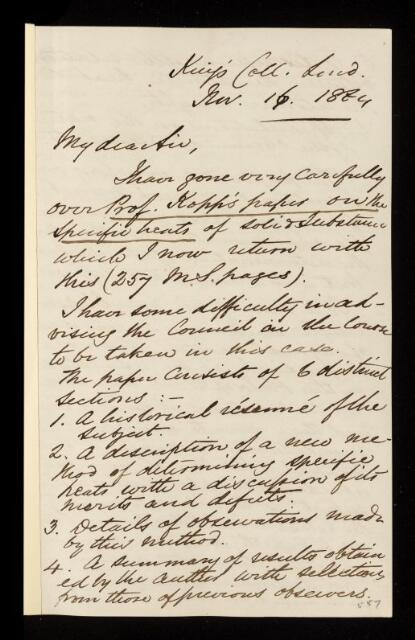 King's Coll. Lond.
Nov. 16. 1864
My dear Sir,
I have gone very carefully
over Prof. Kopp's paper on the
specific heats of solid substances
which I now return with
this (257 M.S. pages).
I have some difficulty in ad-
vising the Council on the course
to be taken in this case.
The paper consists of 6 distinct
sections :-
1. A historical résumé of the
subject.
2. A description of a new me-
thod of determining specific
heats with a discussion of its
merits and defects.
3. Details of observations made
by this method.
4. A summary of results obtain
ed by the author with selections
from those of previous observers.